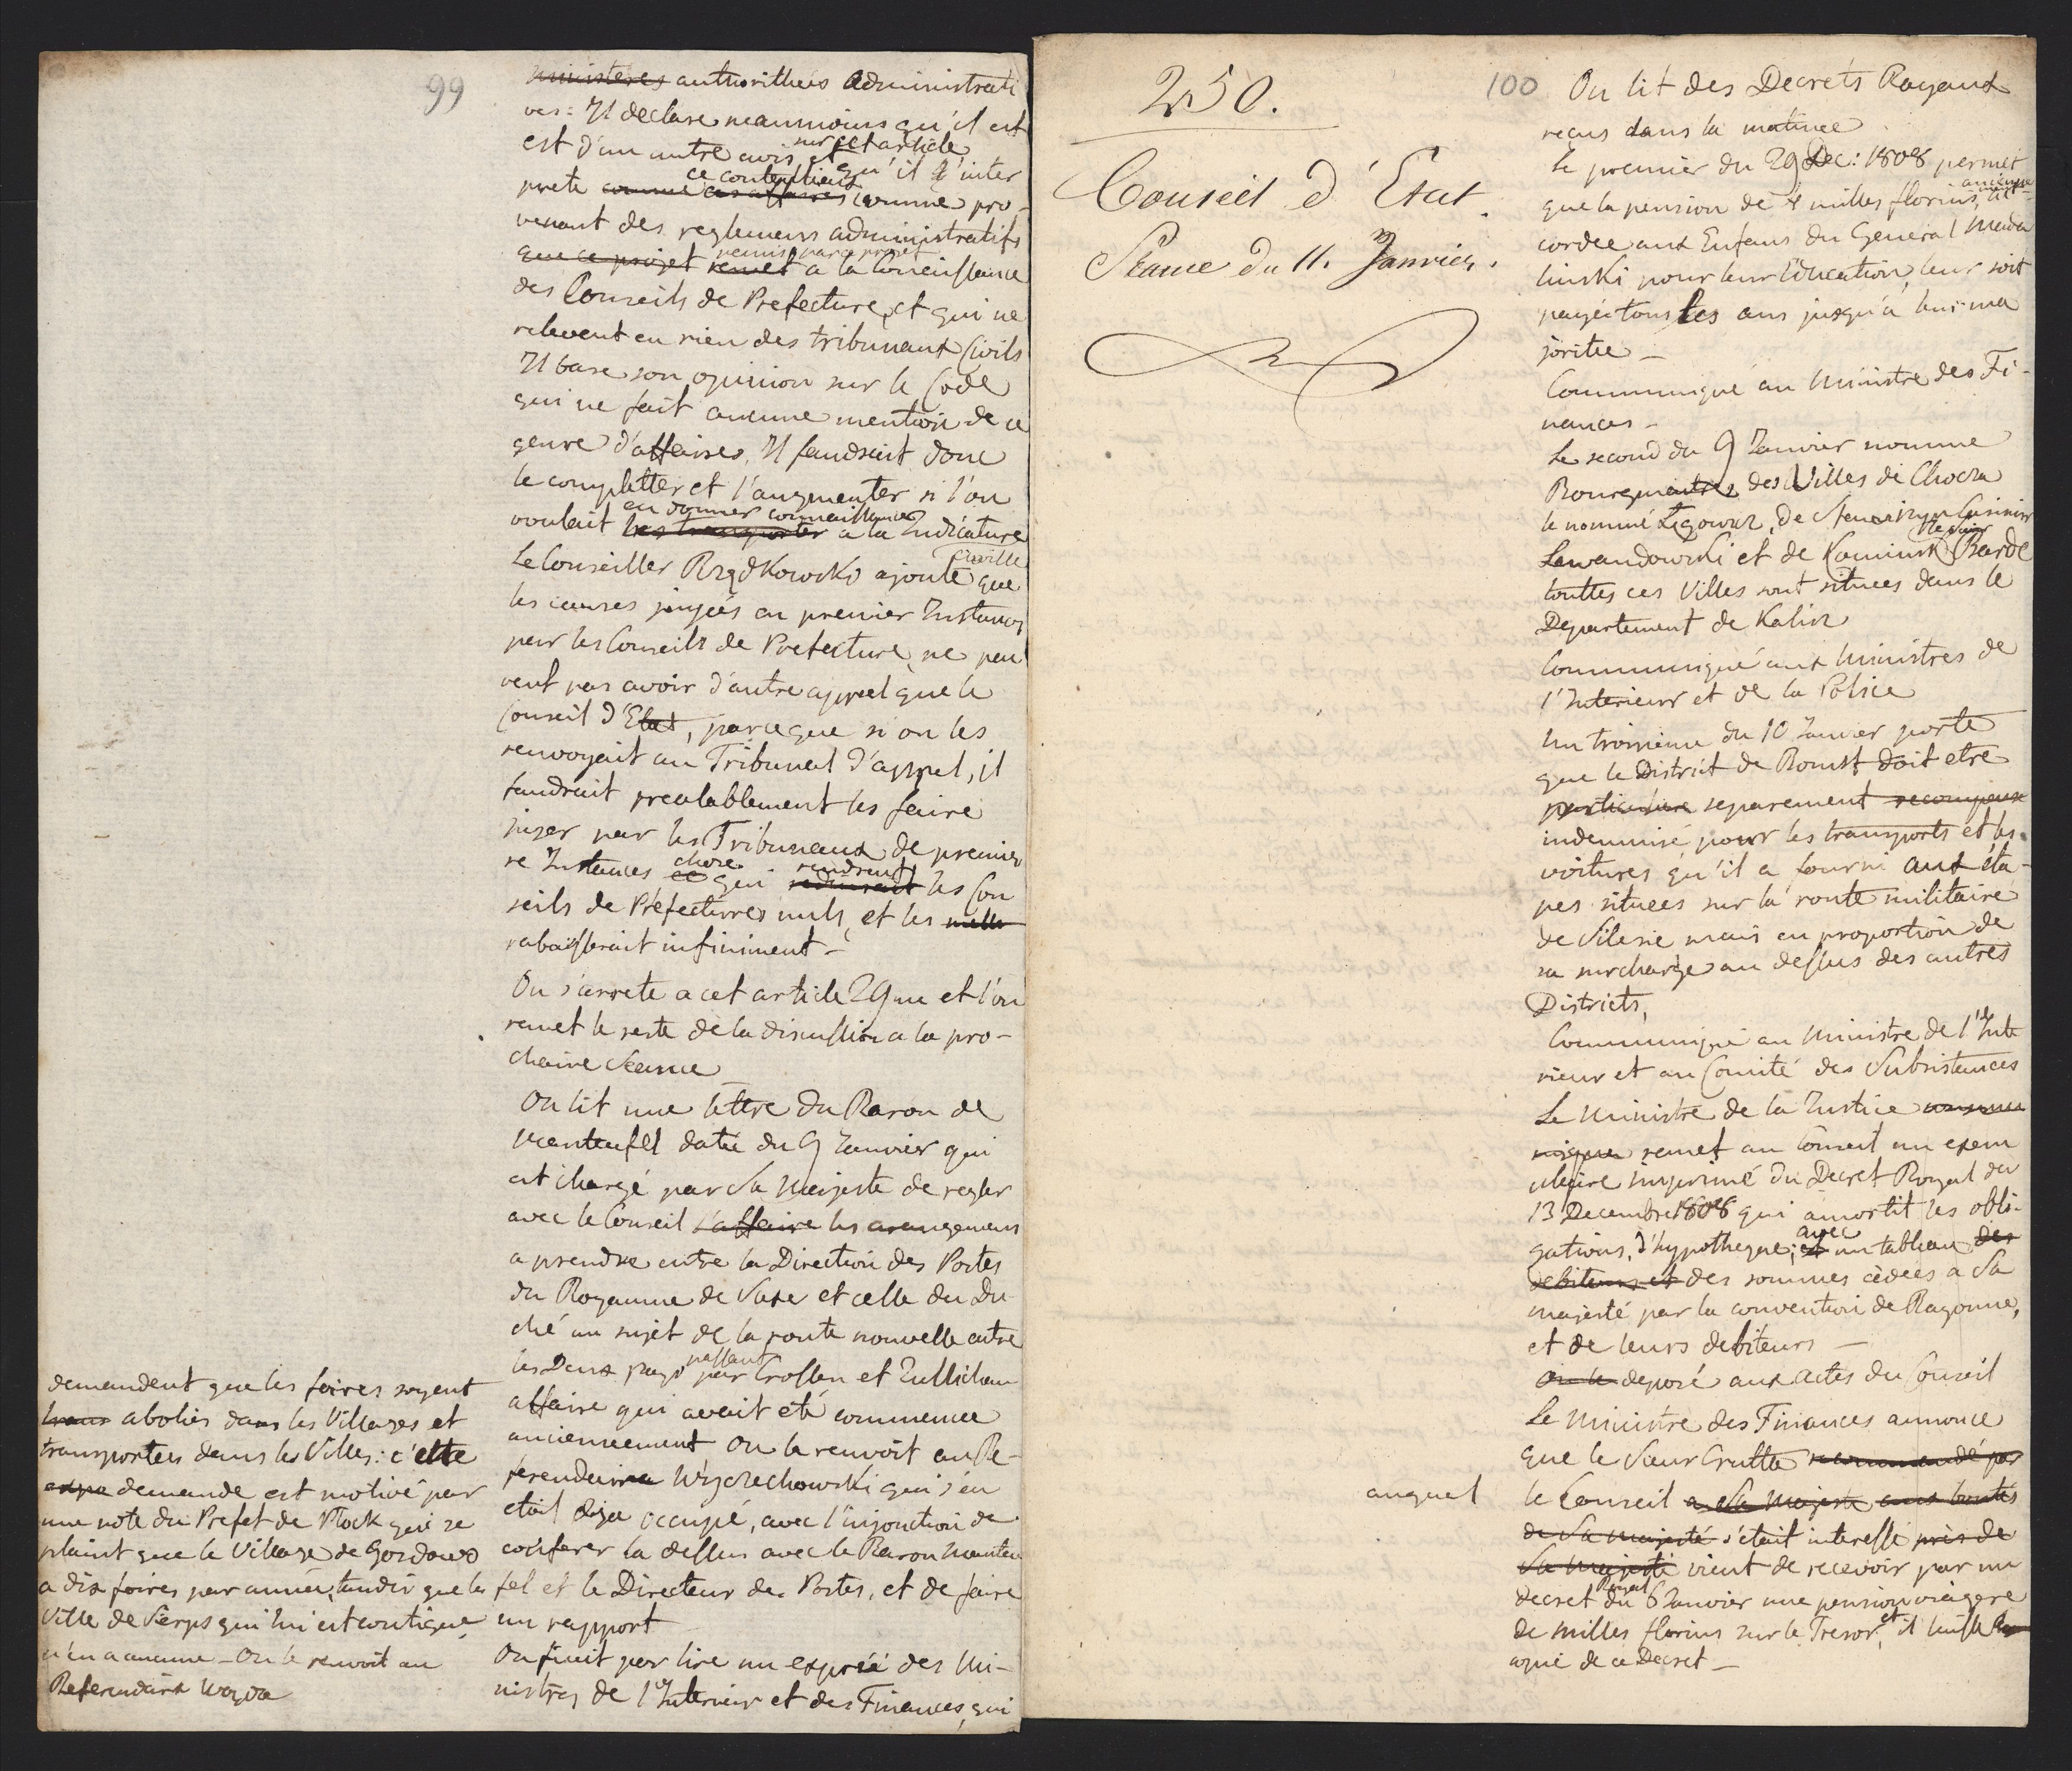 99
ministeres authorithés administrati
ves: Il declare neanmoins qu'il est
est d'un autre avis sur cet article
et qu'il l'inter
prete comme ces affaires ce contentieux comme pro-
venant des reglemens administratifs
que ce projet remet remis par ce projet a la Connoissance
des Conseils de Prefecture, et qui ne
relevent en rien des tribunaux Civils
Il base son opinion sur le Code
qui ne fait aucune mention de ce
genre d'affaires, Il faudrait donc
le completter et l'augmenter si l'on
voulait les transporter en donner connaissance a la Judicature
Civille
Le Conseiller Rządkowski ajoute que
les causes jugées en premier Instances
par les Conseils de Prefecture, ne peu
vent pas avoir d'autre appel que le
Conseil d'Etat, parceque si on les
renvoyait au Tribunal d'appel, il
faudrait prealablement les faire
juger par les Tribuneaux de premie
re Instances ce chose qui reduirait rendrait les Con
seils de Préfectures nuls, et les nulls
rabaisserait infiniment -
On s'arrete a cet article 29me et l'on
remet le reste de la discussion a la pro-
chaine Seance
On lit une lettre du Baron de
Manteufel datée du 9 Janvier qui
est chargé par Sa Majeste de regler
avec le Conseil l'affaire les arangemens
a prendre entre la Direction des Postes
du Royaume de Saxe et celle du Du-
ché au sujet de la route nouvelle entre
les Deux pays passant par Crossen et Zullichau
affaire qui avait été commencee
anciennement On la renvoit au Re-
ferendaire Wyczechowski qui s'en
etait deja occupé, avec l'injonction de
conferer la dessus avec le Baron Manteu
fel et le Directeur des Postes, et de faire
un rapport
On finit par lire un exposé des Mi-
nistres de l'Interieur et des Finances, qui
demandent que les foires soyent
trans abolies dans les Villages et
transportées dans les Villes: cette
expo demande est motivé par
une note du Prefet de Plock qui se
plaint que le Village de Gozdowo
a dix foires par année, tandis que la
Ville de Sierps qui lui est contigue
n'en a aucune - On le renvoit au
Referendaire Woyda
250.
Conseil d'Etat.
Séance du 11. Janvier.
100
On lit des Decrets Royaux
reçus dans la matinee
Le premier du 29 Dec: 1808 permet
que la pension de 4 milles florins, anciennement ac-
cordee aux Enfans du General Mada
linski pour leur Education, leur soit
payée tous les ans jusqu'a leur ma
joritée -
Communiqué au Ministre des Fi-
nances -
Le second du 9 Janvier nomme
Bourgmestres des Villes de Chocz
le nommé Ligowicz, de Casimir
Lewandowski et de Kaminsk le Sieur Barde
touttes ces Villes sont situees dans le
Departement de Kalisz
Communiqué aux Ministres de
l'Interieur et de la Police
Un troisieme du 10 Janvier porte
que le District de Bomst doit etre
particuliere separement recompense
indemnisé pour les transports et les
voitures qu'il a fourni aux éta-
pes situees sur la route militaire
de Silesie mais en proportion de
sa surcharge au dessus des autres
Districts,
Communiqué au Ministre de l'Inte
rieur et au Comité des Subsistances
Le Ministre de la Justice commu
nique remet au Conseil un exem
plaire imprimé du Decret Royal du
13 Decembre 1808 qui amortit les obli-
gations d'hypotheque, et avec un tableau des
debiteurs et des sommes cédées a Sa
majesté par la convention de Bayonne,
et de leurs debiteurs -
On le deposé aux actes du Conseil
Le Ministre des Finances annonce
que le Sieur Crutta recommandé par
auquel le Conseil a Sa Majesté aux bontés
de Sa Majesté s'était interessé près de
Sa Majesté vient de recevoir par un
decret Royal du 6 Janvier une pension viagere
de milles florins sur le Tresor, et il laisse
copie de ce Decret -